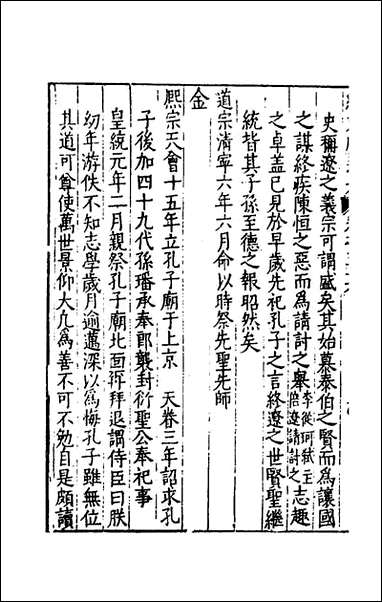 史稱遼之義宗可謂盛矣其始慕泰伯之賢而為讓國
之謀終疾陳恒之惡而為請討之舉李從珂弒主倍遼請討之志趣
之卓蓋已見於早歲先祀孔子之言終遼之世賢聖繼
統皆其子孫至德之報昭然矣
道宗清寧六年六月命以時祭先聖先師
金
熙宗天會十五年立孔子廟于上京 天眷三年詔求孔
子後加四十九代孫璠承奉郎襲封衍聖公奉祀事
皇統元年二月親祭孔子廟北面再拜退謂侍臣曰朕
幼年游佚不知志學歲月逾邁深以為悔孔子雖無位
其道可尊使萬世景仰大凡為善不可不勉自是頗讀